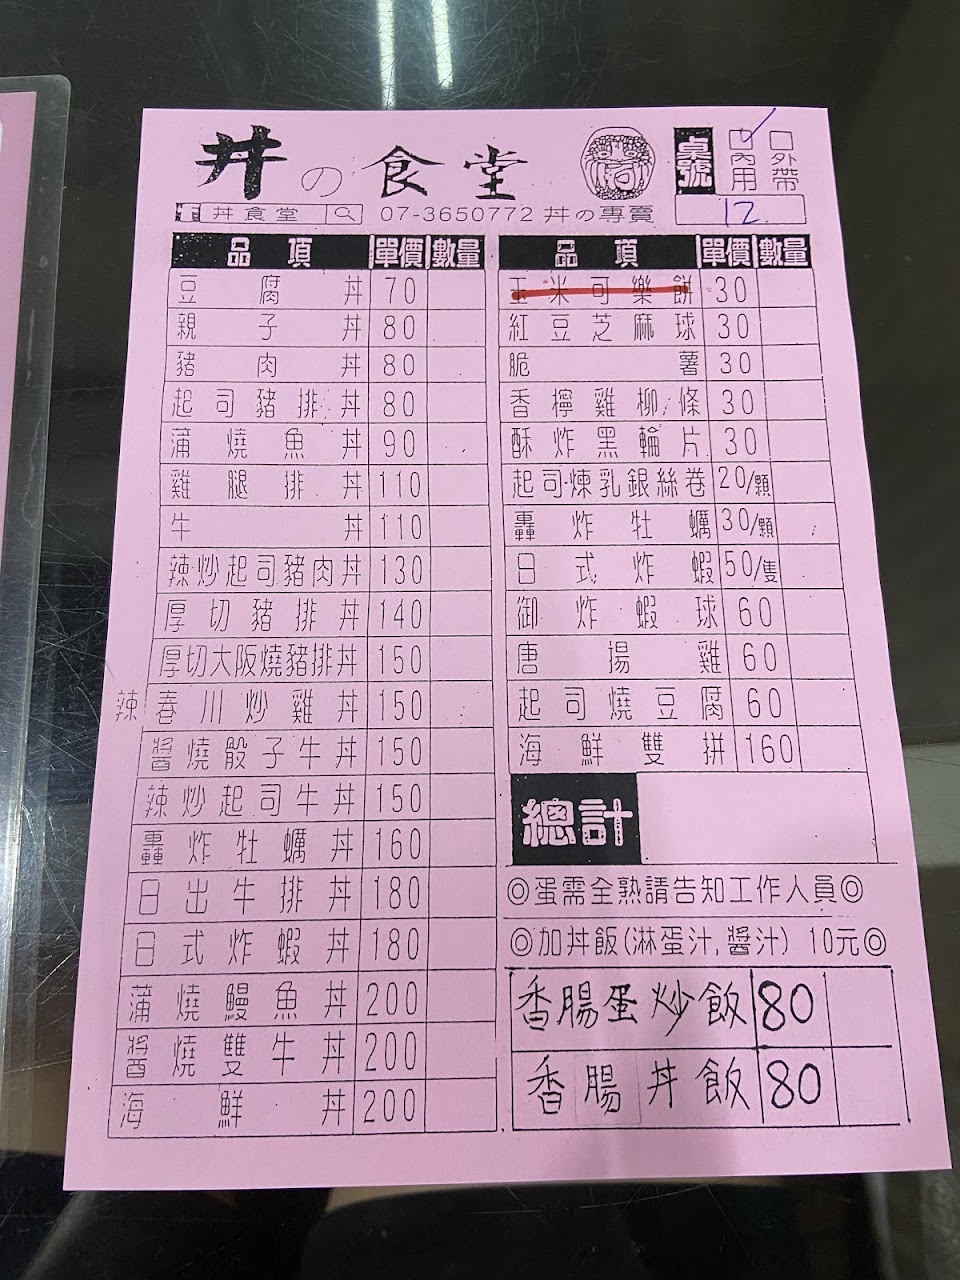 丼の食堂
桌號
內用
外帶
12.
丼食堂
07-3650772 丼の專賣
品項 單價 數量
豆腐丼 70
親子丼 80
豬肉丼 80
起司豬排丼 80
蒲燒魚丼 90
雞腿排丼 110
牛丼 110
辣炒起司豬肉丼 130
厚切豬排丼 140
厚切大阪燒豬排丼 150
辣 春川炒雞丼 150
醬燒骰子牛丼 150
辣炒起司牛丼 150
轟炸牡蠣丼 160
日出牛排丼 180
日式炸蝦丼 180
蒲燒鰻魚丼 200
醬燒雙牛丼 200
海鮮丼 200
品項 單價 數量
玉米可樂餅 30
紅豆芝麻球 30
脆薯 30
香檸雞柳條 30
酥炸黑輪片 30
起司煉乳銀絲卷 20/顆
轟炸牡蠣 30/顆
日式炸蝦 50/隻
御炸蝦球 60
唐揚雞 60
起司燒豆腐 60
海鮮雙拼 160
總計
◎蛋需全熟請告知工作人員◎
◎加丼飯(淋蛋汁,醬汁) 10元◎
香腸蛋炒飯 80
香腸丼飯 80